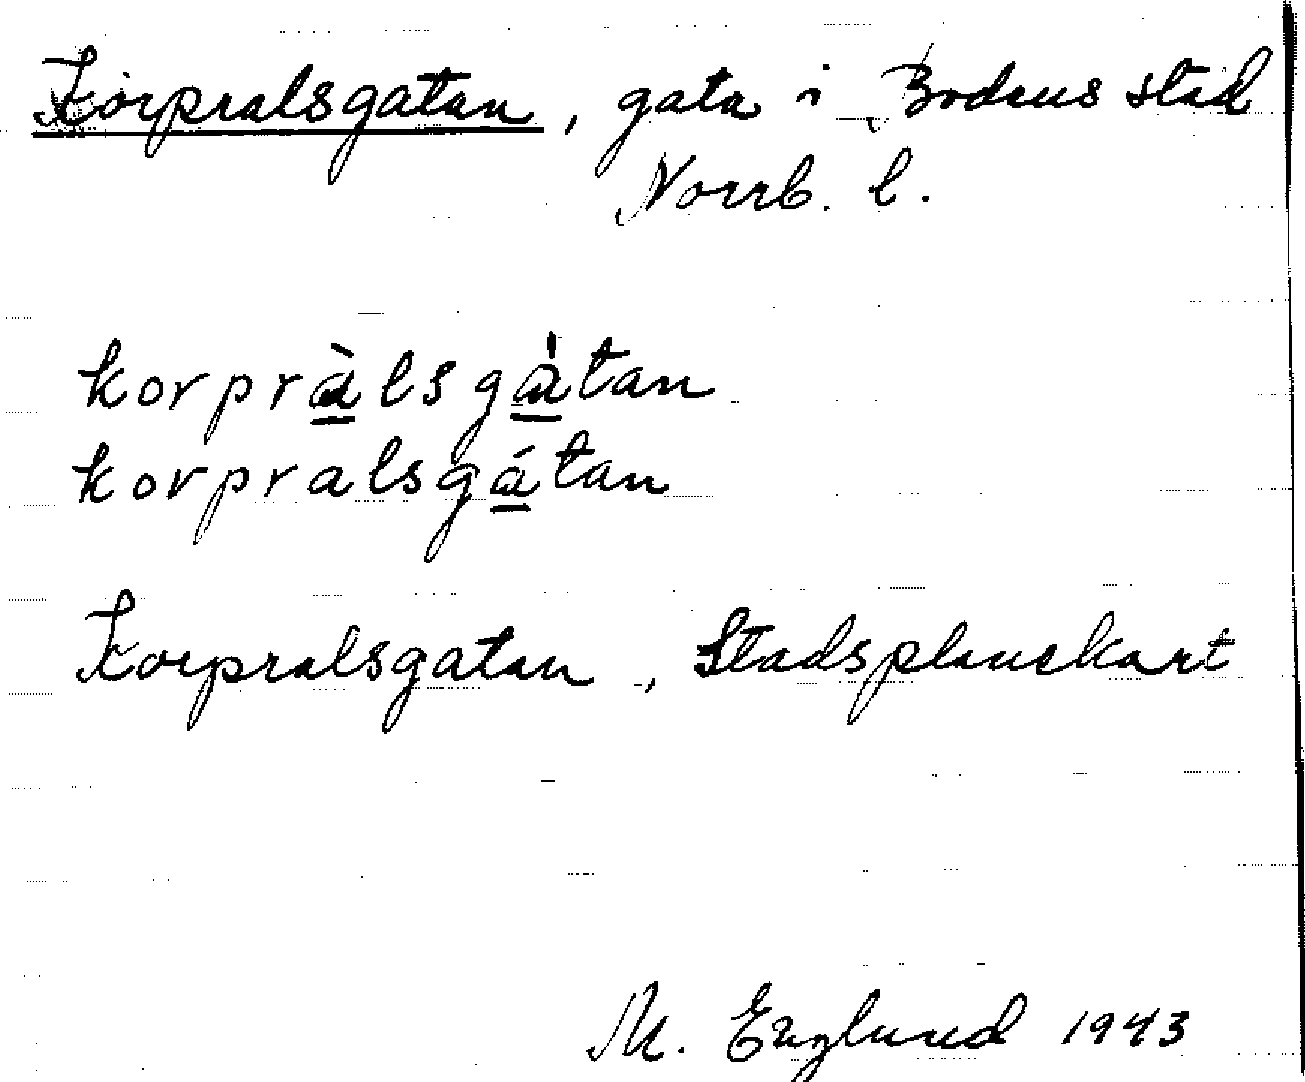 Korpralsgatan, gata i Bodens stad
Norrb. l.
korpràlsgàtan
korpralsgátan
Korpralsgatan, Stadsplanekart
M. Englund 1943